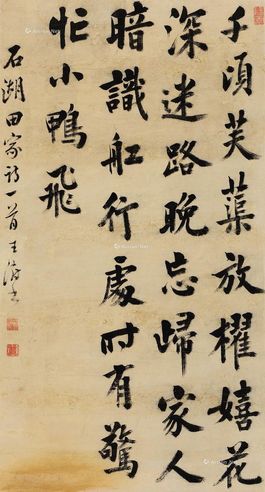 千頃芙蕖放櫂嬉花
深迷路晚忘歸家人
暗識舡行處時有驚
忙小鴨飛
石湖田家詩一首王澍書